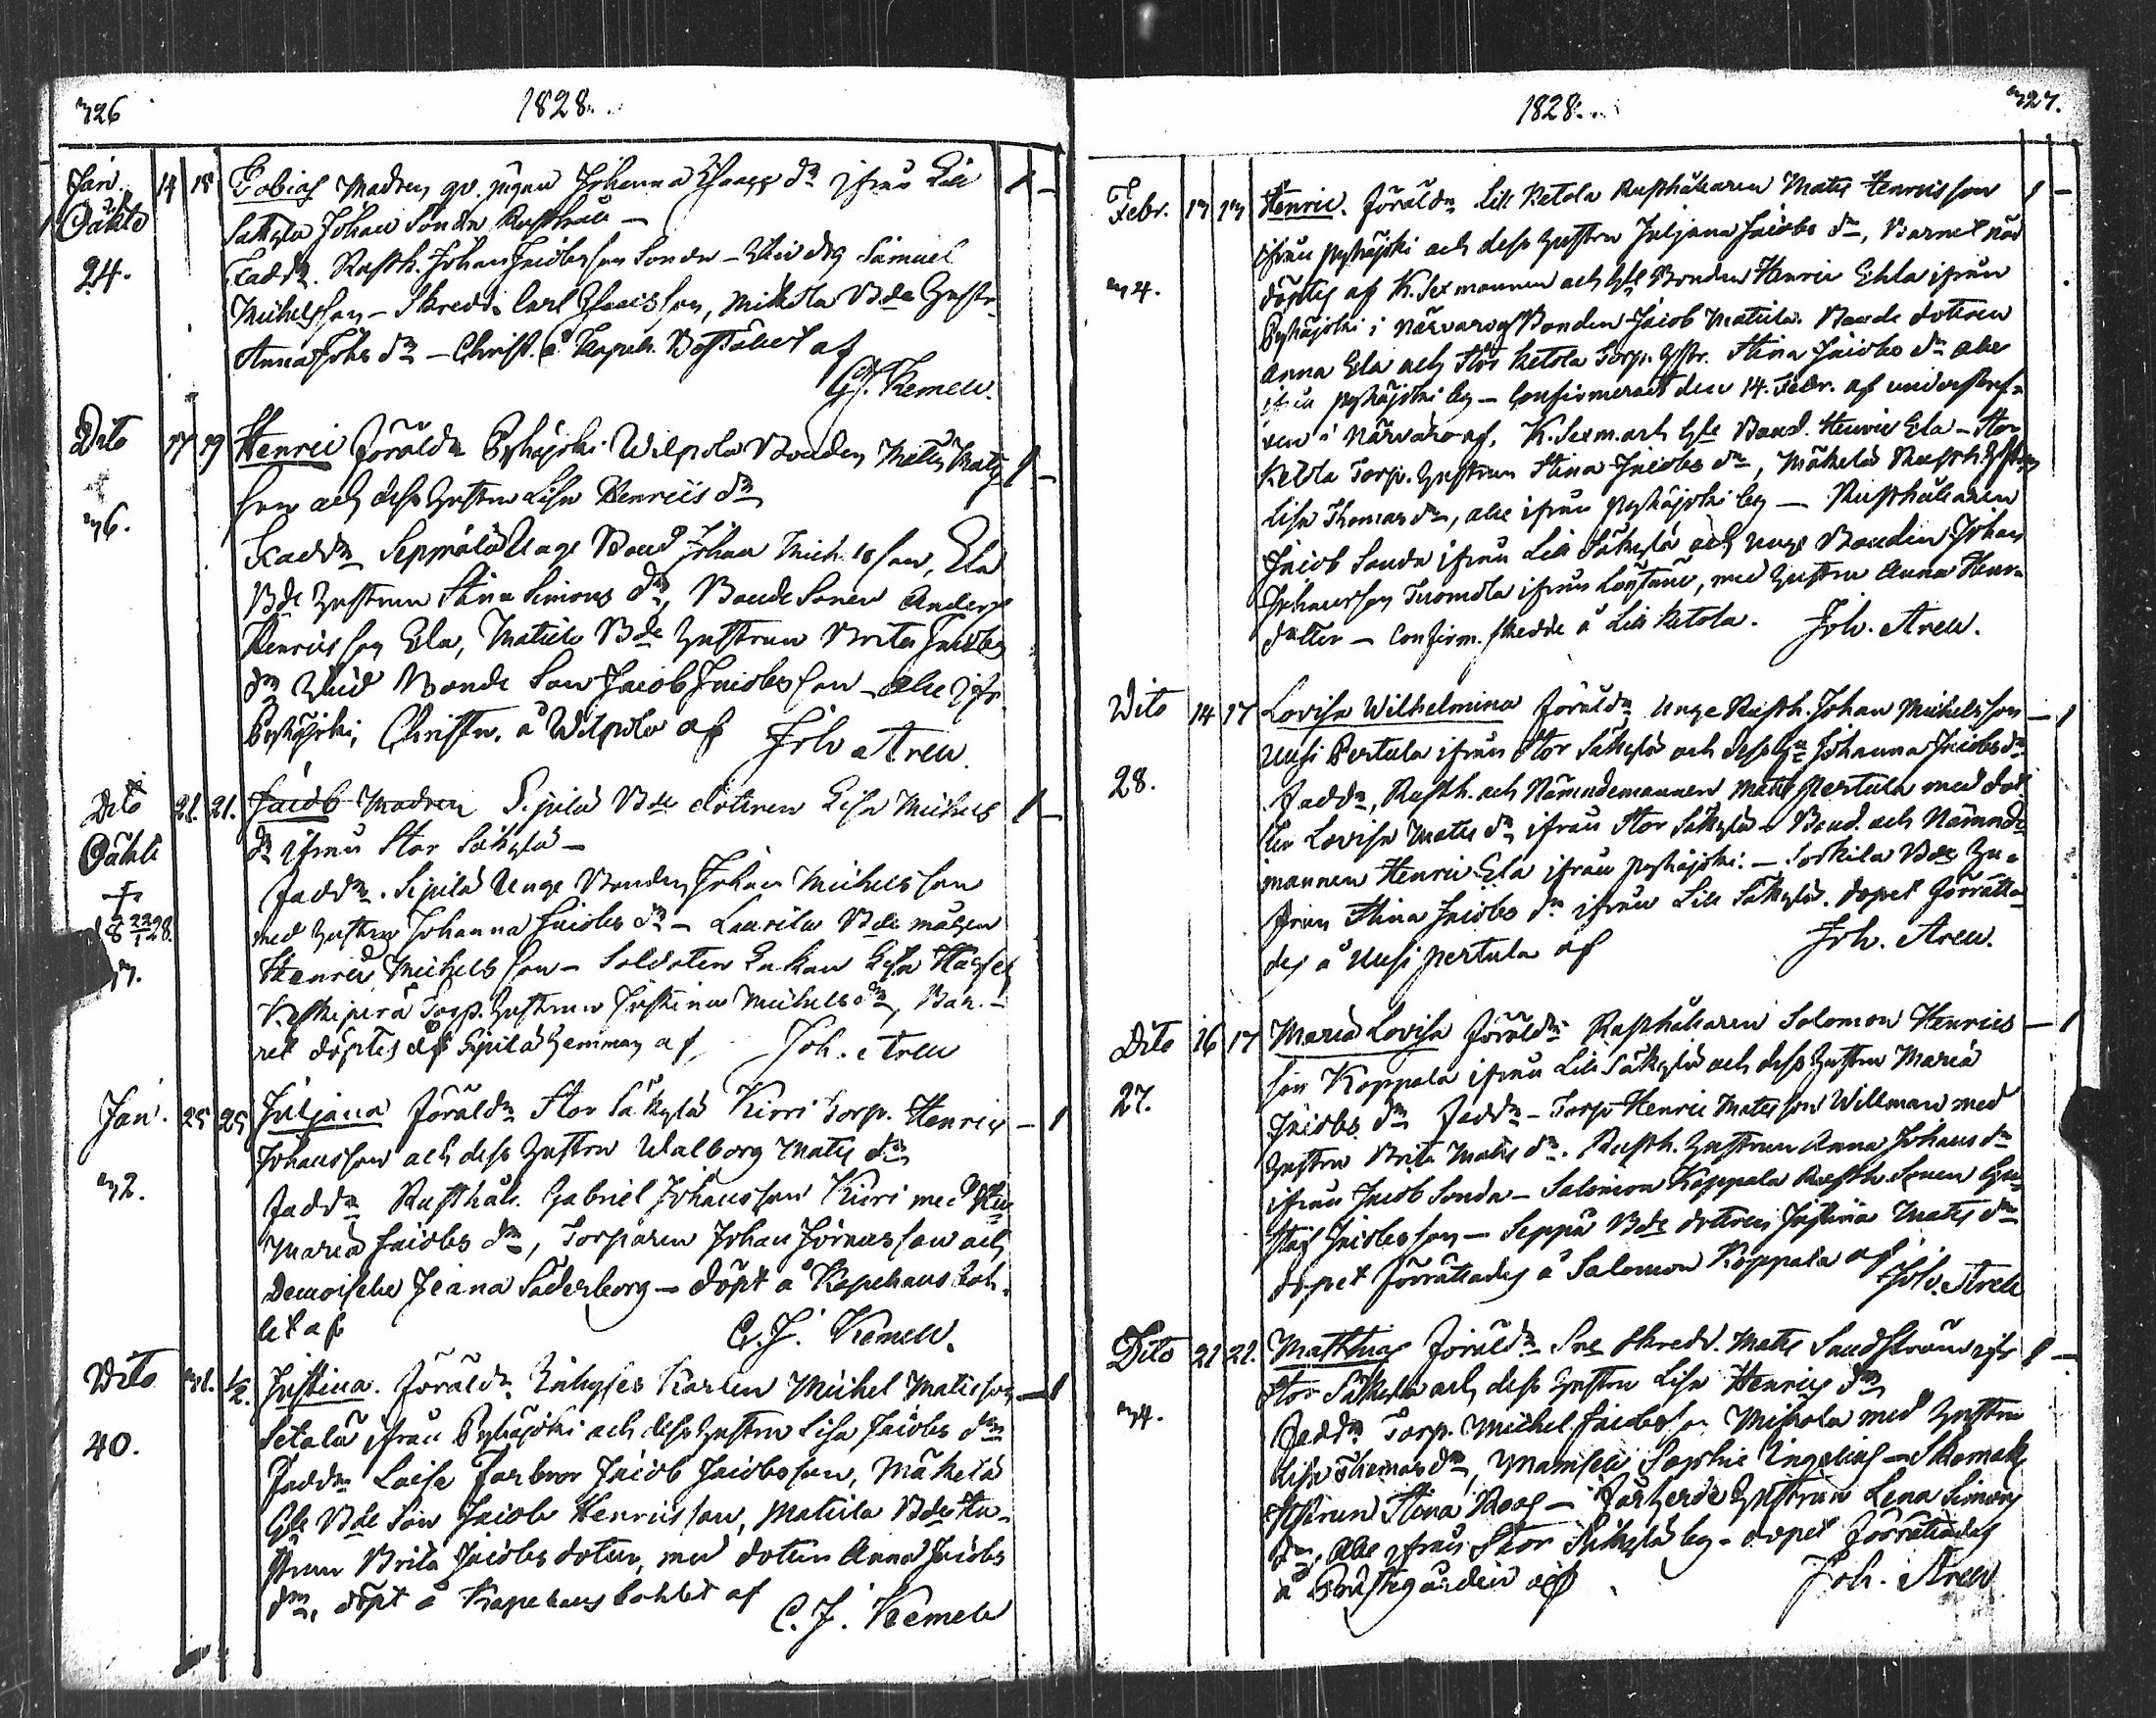 326
1828.
Jan. 14 15 Tobias Modren gv. pigan Johanna Isaacs dr ifrån Lill
Oäkta Säkylä Johan Sonda Rusthåll —
24. Faddr. Rusth. Johan Jacobsson Sonda — Samuel
Michelsson — Skredd. Carl Isaacsson, Mickola Bde Hustr.
Anna Johs dr — Christ. å Kapell. Bostället af
C. J. Kemell.
Dito 17 19 Henric Föräldr Pyhäjoki Wilpola Bonden Matts Mats
36. son och dess Hustru Lisa Henrics dr
Faddr Seppälä Unge Bond Johan Michelsson, Ela
Bde Hustrun Stina Simons dr, Bonde Sonen Anders
Henricsson Ela, Mattila Bde Hustrun Brita Jacobs
dr Bonde Son Jacob Jacobsson — alle ifr.
Pyhäjoki, Christn. å Wilpola af Joh. Arell.
Dito 21. 21. Jacob Modren Sipilä Bde dotren Lisa Michels
Oäkta dr ifrån Stor Säkylä —
† Faddr. Sipilä Unge Bonden Johan Michelsson
d. 8 22/1 28. med Hustru Johanna Jacobs dr — Laurila Bde mågen
Henric Michelsson — Soldaten Lisa
Keskiperä Torp. Hustrun Justina Michels dr, Bar-
net döptes å Sipilä Hemman af Joh. Arell
Jan. 25 25 Juljana Föräldr Stor Säkylä Kirri Torp. Henric
Johansson och dess Hustru Walborg Mats dr
32. Faddr Rusthåll. Gabriel Johansson Kirri med Hu
Maria Jacobs dr, Torparen Johan Jöransson och
Demoiselle Jeana Söderborg — döpt å Kapellans Bol-
let af C. J. Kemell.
Dito 31. 1/2. Justina. Föräldr Inhyses Karlen Michel Matsson
Setälä ifrån Pyhäjoki och dess Hustru Lisa Jacobs dr
40. Faddr Jacob Jacobsson, Mäkelä
Gle Bde Son Jacob Henricsson, Mattila Bde Hu-
strun Brita Jacobs dotter, med dotren Anna Jacobs
dr, döpt å Kapellans Bohlet af
C. J. Kemell
1828.
327.
Febr. 13 13 Henric. Föräldr Lill Ketola Rusthållaren Mats Henricsson
ifrån Pyhäjoki och dess Hustru Juljana Jacobs dr, Barnet nöd
34. döptes af K. Sexmannen och Gle Bonden Henric Ehla ifrån
Pyhäjoki i närvaro af Bonden Jacob Mattila. Bonde dotren
Anna Ela och Stor Ketola Torp. Hustr. Stina Jacobs dr alla
ifrån Pyhäjoki by — Confirmerat den 14. Febr. af underskref-
ven i närvaro af, K. Sexm. och Gle Bond. Henric Ela — Stor
Ketola Torp. Hustrun Stina Jacobs dr, Mäkelä Rusth. Hstrun
Lisa Thomas dr, alla ifrån Pyhäjoki by — Rusthållaren
Jacob Sonda ifrån Lill Säkylä och unge Bonden Johan
Johansson Tuomola ifrån, med Hustru Anna Henr-
dotter — Confirm. skedde å Lill Ketola. Joh. Arell.
Dito 14 17 Lovisa Wilhelmina Föräldr Unge Rusth. Johan Michelsson
Uusi Pertula ifrån Stor Säkylä och dess Hu Johanna Jacobs dr
28. Faddr, Rusth. och Nämndemannen Mats Pertula med dot-
ter Lovisa Mats dr ifrån Stor Säkylä — Bond. och Nämnde-
mannen Henric Ela ifrån Pyhäjoki. — Bde Hu-
strun Stina Jacobs dr ifrån Lill Säkylä. Dopet förrätta-
des å Uusi Pertula af Joh. Arell.
Dito 16 17 Maria Lovisa Föräldr Rusthållaren Solomon Henrics
son Koppala ifrån Lill Säkylä och dess Hustru Maria
27. Jacobs dr Faddr — Torp. Henric Matsson Willman med
Hustru Brita Mats dr. Rusth. Hustrun Anna Johans dr
ifrån Jacob Sonda — Salomon Koppala Rusth. Sonen Gu-
staf Jacobsson — Seppä Bde dotren Justina Mats dr
dopet förrättades å Salomon Koppala af
Joh. Arell
Dito 21 22. Matthias Föräldr Skredd. Mats Sandström ifr
Stor Säkylä och dess Hustru Lisa Henrics dr
34. Faddr Torp. Michel Jacobsson Mikola med Hustru
Lisa Thomas dr, Mamsell Sophie Ingelius — Skomak.
Hstrun Stina Roos — Hustrun Lena Simons
dr, alla ifrån Stor Säkylä by — dopet förrättades
å Prästegården af Joh. Arell